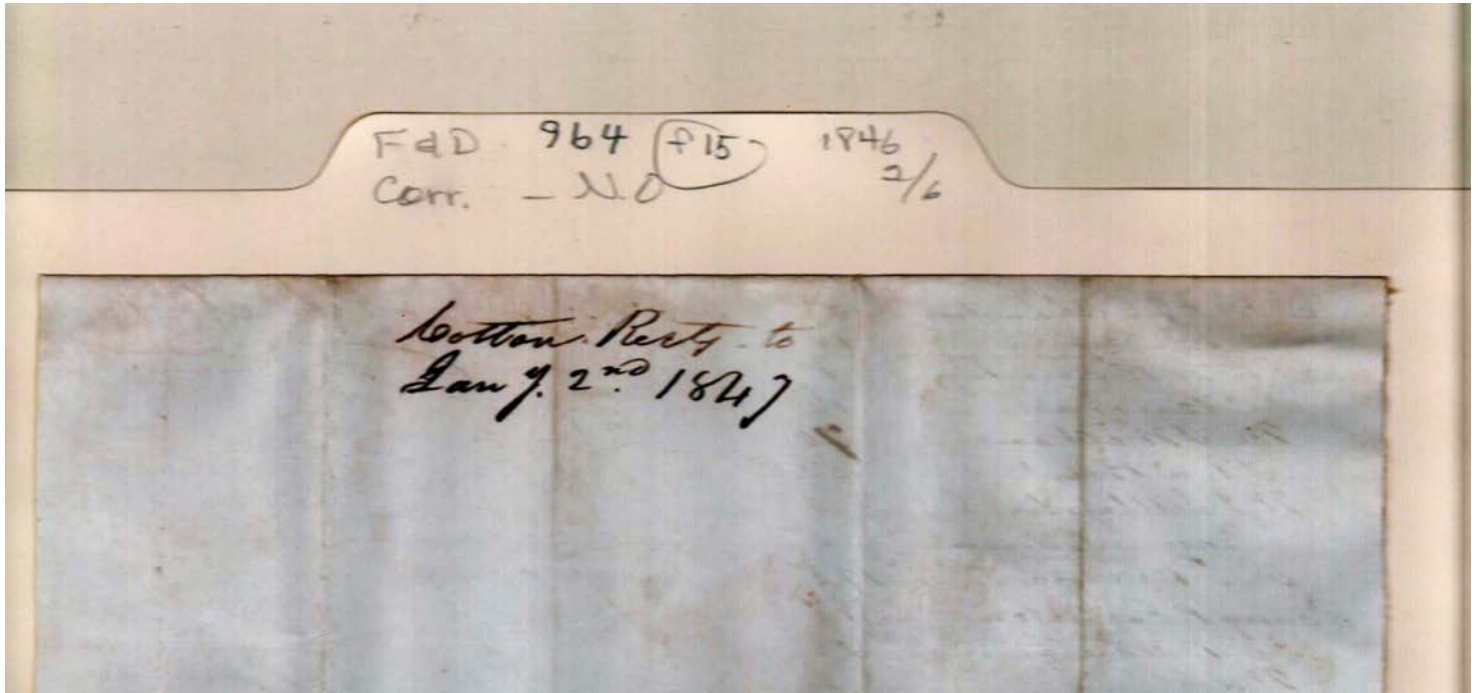 F&D 964 f15 1846
Corr. - N.O 2/6
Cotton Rects to
Jany. 2nd. 1847